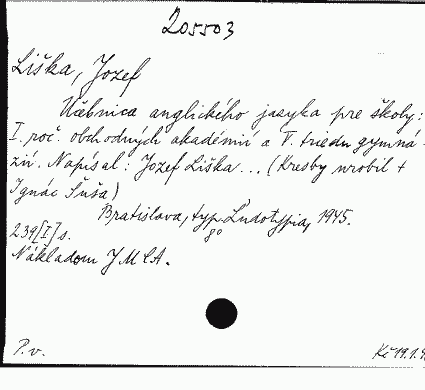 205503
Liška, Jozef
Učebnica anglického jazyka pre školy:
I. roč. obchodných akadémií a V. triedu gymná-
zií. Napísal: Jozef Liška... (Kresby urobil +
Ignác Šuša)
Bratislava, typ. Ludotypia, 1945.
8°
239[I] s.
Nákladom YMCA.
P.v.
Kč 19.1.